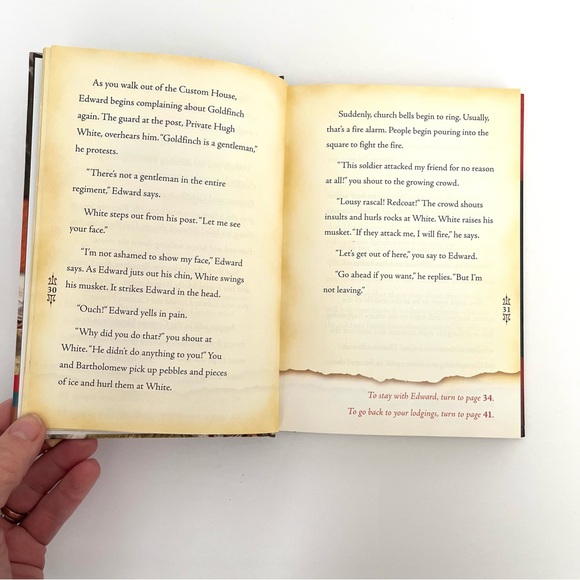 As you walk out of the Custom House,
Edward begins complaining about Goldfinch
again. The guard at the post, Private Hugh
White, overhears him. “Goldfinch is a gentleman,”
he protests.
“There’s not a gentleman in the entire
regiment,” Edward says.
White steps out from his post. “Let me see
your face.”
“I’m not ashamed to show my face,” Edward
says. As Edward juts out his chin, White swings
his musket. It strikes Edward in the head.
“Ouch!” Edward yells in pain.
“Why did you do that?” you shout at
White. “He didn’t do anything to you!” You
and Bartholomew pick up pebbles and pieces
of ice and hurl them at White.
30
Suddenly, church bells begin to ring. Usually,
that’s a fire alarm. People begin pouring into the
square to fight the fire.
“This soldier attacked my friend for no reason
at all!” you shout to the growing crowd.
“Lousy rascal! Redcoat!” The crowd shouts
insults and hurls rocks at White. White raises his
musket. “If they attack me, I will fire,” he says.
“Let’s get out of here,” you say to Edward.
“Go ahead if you want,” he replies. “But I’m
not leaving.”
31
To stay with Edward, turn to page 34.
To go back to your lodgings, turn to page 41.